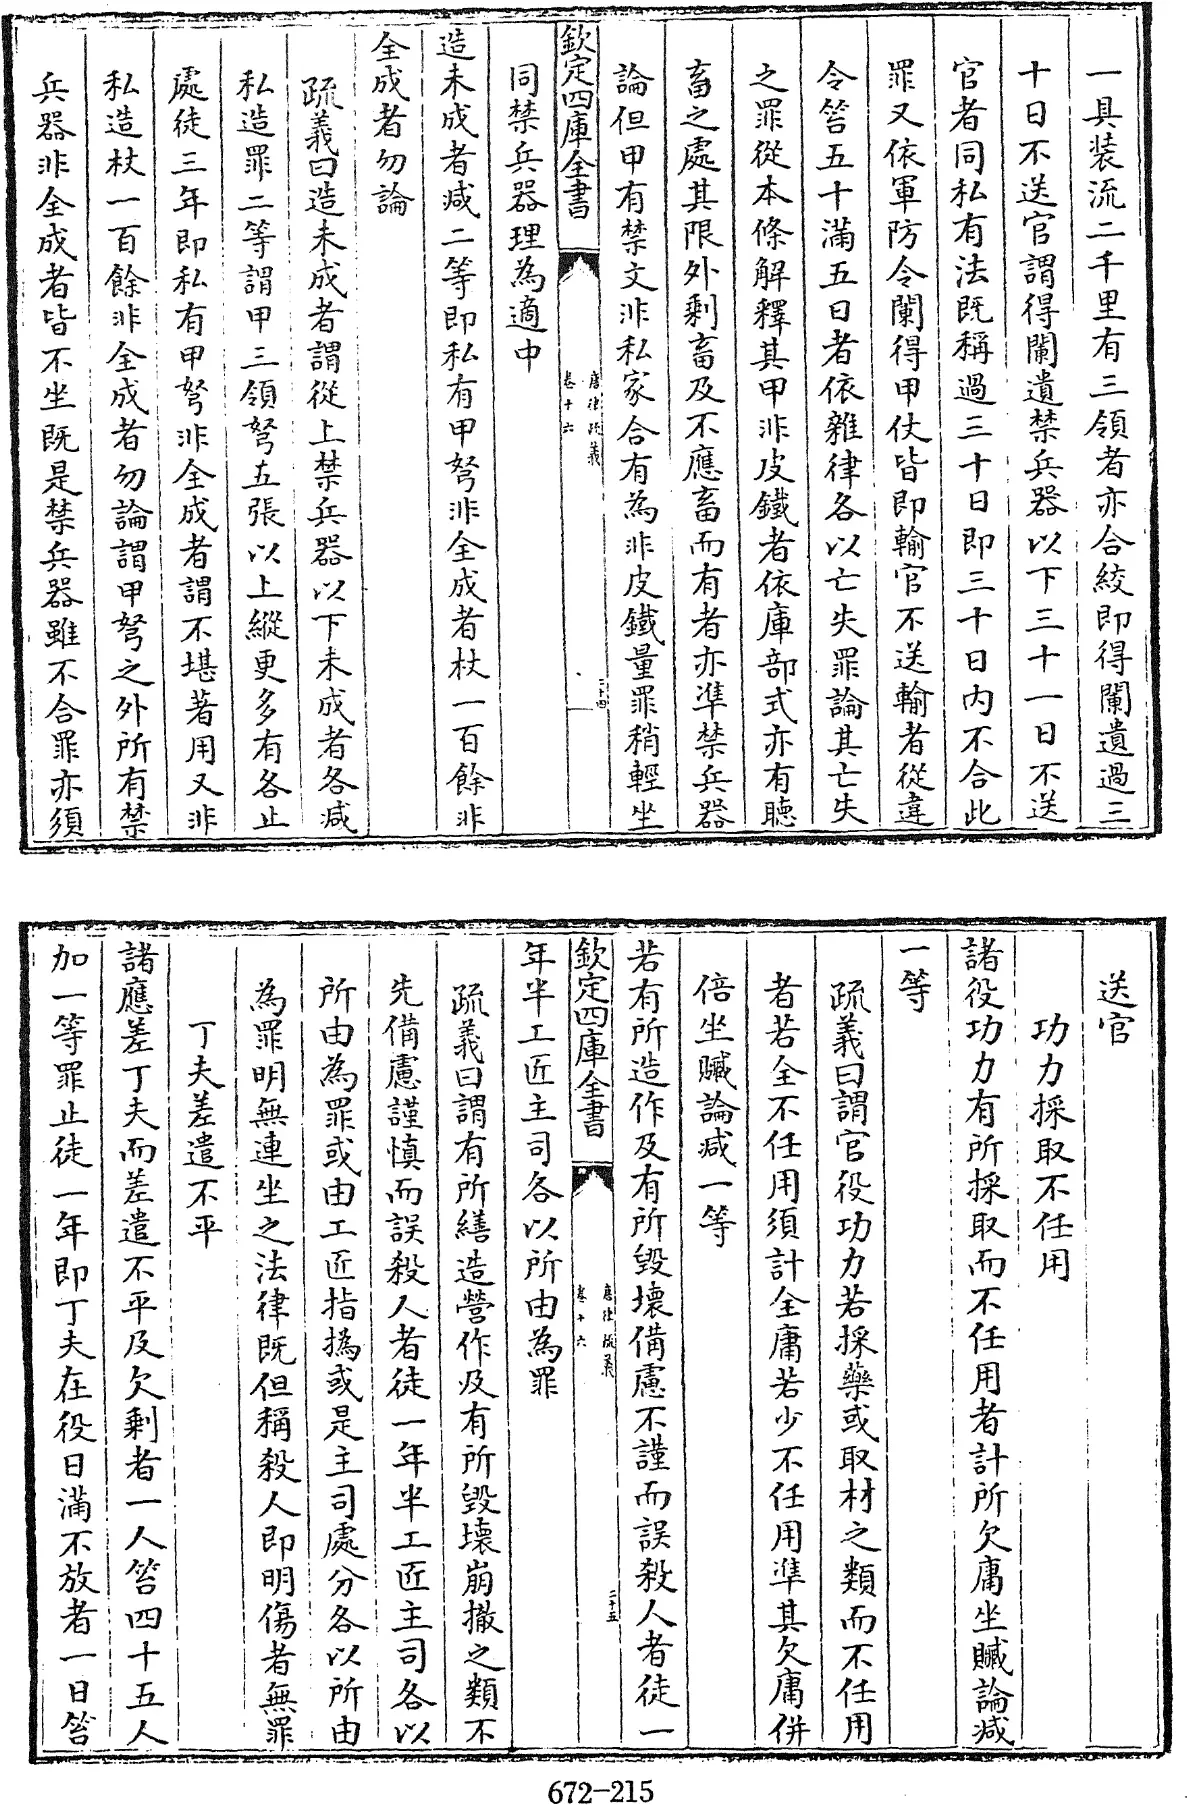 一具装流二千里有三領者亦合絞即得闌遺過三
十日不送官謂得闌遺禁兵器以下三十一日不送
官者同私有法既稱過三十日即三十日内不合此
罪又依軍防令闌得甲仗皆即輸官不送輸者從違
令笞五十滿五日者依雜律各以亡失罪論其亡失
之罪從本條解釋其甲非皮鐵者依庫部式亦有聽
畜之處其限外剩畜及不應畜而有者亦准禁兵器
論但甲有禁文非私家合有為非皮鐵量罪稍輕坐
欽定四庫全書
唐律疏義
卷十六
二十四
同禁兵器理為適中
造未成者减二等即私有甲弩非全成者杖一百餘非
全成者勿論
疏義曰造未成者謂從上禁兵器以下未成者各减
私造罪二等謂甲三領弩五張以上縱更多有各止
處徒三年即私有甲弩非全成者謂不堪著用又非
私造杖一百餘非全成者勿論謂甲弩之外所有禁
兵器非全成者皆不坐既是禁兵器雖不合罪亦須
送官
功力採取不任用
諸役功力有所採取而不任用者計所欠庸坐贓論减
一等
疏義曰謂官役功力若採藥或取材之類而不任用
者若全不任用須計全庸若少不任用準其欠庸併
倍坐贓論减一等
若有所造作及有所毀壞備慮不謹而誤殺人者徒一
欽定四庫全書
唐律疏義
卷十六
二十五
年半工匠主司各以所由為罪
疏義曰謂有所繕造營作及有所毀壞崩撤之類不
先備慮謹慎而誤殺人者徒一年半工匠主司各以
所由為罪或由工匠指撝或是主司處分各以所由
為罪明無連坐之法律既但稱殺人即明傷者無罪
丁夫差遣不平
諸應差丁夫而差遣不平及欠剩者一人笞四十五人
加一等罪止徒一年即丁夫在役日滿不放者一日笞
672-215